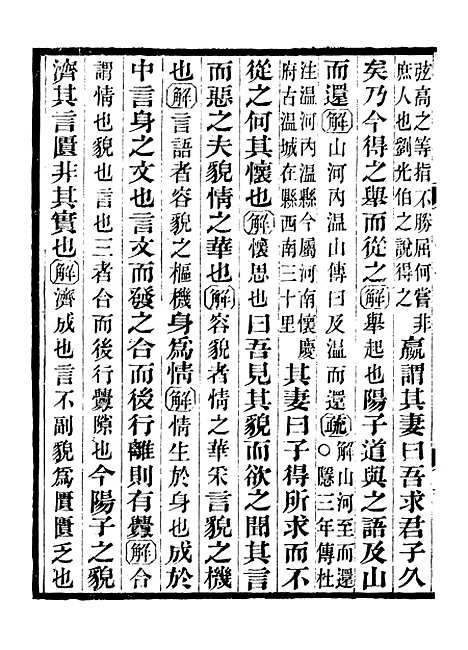 弦高之等指不勝屈何嘗非庶人也劉光伯之說得之嬴謂其妻曰吾求君子久
矣乃今得之舉而從之解舉起也陽子道與之語及山
而還解山河內溫山傳曰及溫而還疏解山河至而還○隱三年傳杜
注溫河內溫縣今屬河南懷慶府古溫城在縣西南三十里其妻曰子得所求而不
從之何其懷也解懷思也曰吾見其貌而欲之聞其言
而惡之夫貌情之華也解容貌者情之華采言貌之機
也解言語者容貌之樞機身爲情解情生於身也成於
中言身之文也言文而發之合而後行離則有釁解合
謂情也貌也言也三者合而後行釁隙也今陽子之貌
濟其言匱非其實也解濟成也言不副貌爲匱匱乏也